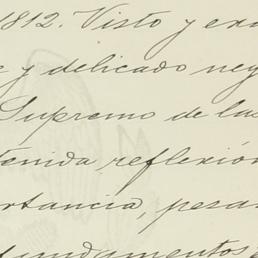 1812. Visto y exa
e y delicado neg
Supremo de las
tenida reflexión
rtancia, pesa
fundamentos